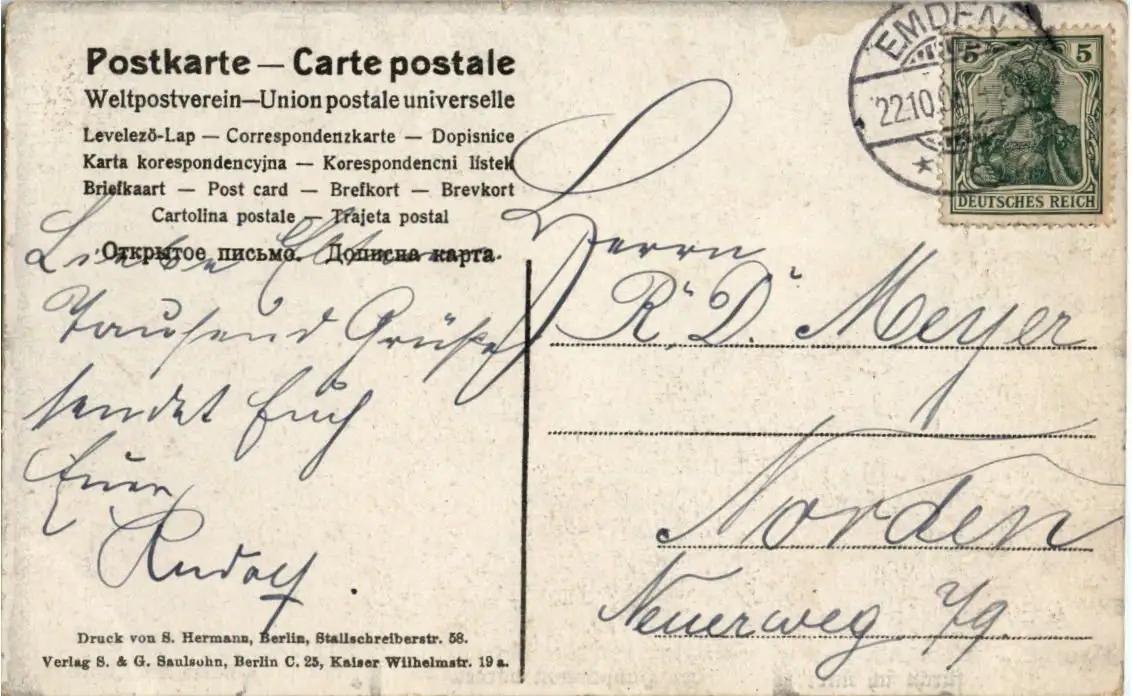 Postkarte — Carte postale
Weltpostverein—Union postale universelle
Levelező-Lap — Correspondenzkarte — Dopisnice
Karta korespondencyjna — Korespondencni lístek
Briefkaart — Post card — Brefkort — Brevkort
Cartolina postale — Trajeta postal
Открытое письмо. Дописна карта.
Liebe Eltern
Tausend Grüße
sendet Euch
Euer
Rudolf.
Druck von S. Hermann, Berlin, Stallschreiberstr. 58.
Verlag S. & G. Saulsohn, Berlin C. 25, Kaiser Wilhelmstr. 19a.
EMDEN
22.10.
5 5
DEUTSCHES REICH
Herrn
R. D. Meyer
Norden
Neuerweg